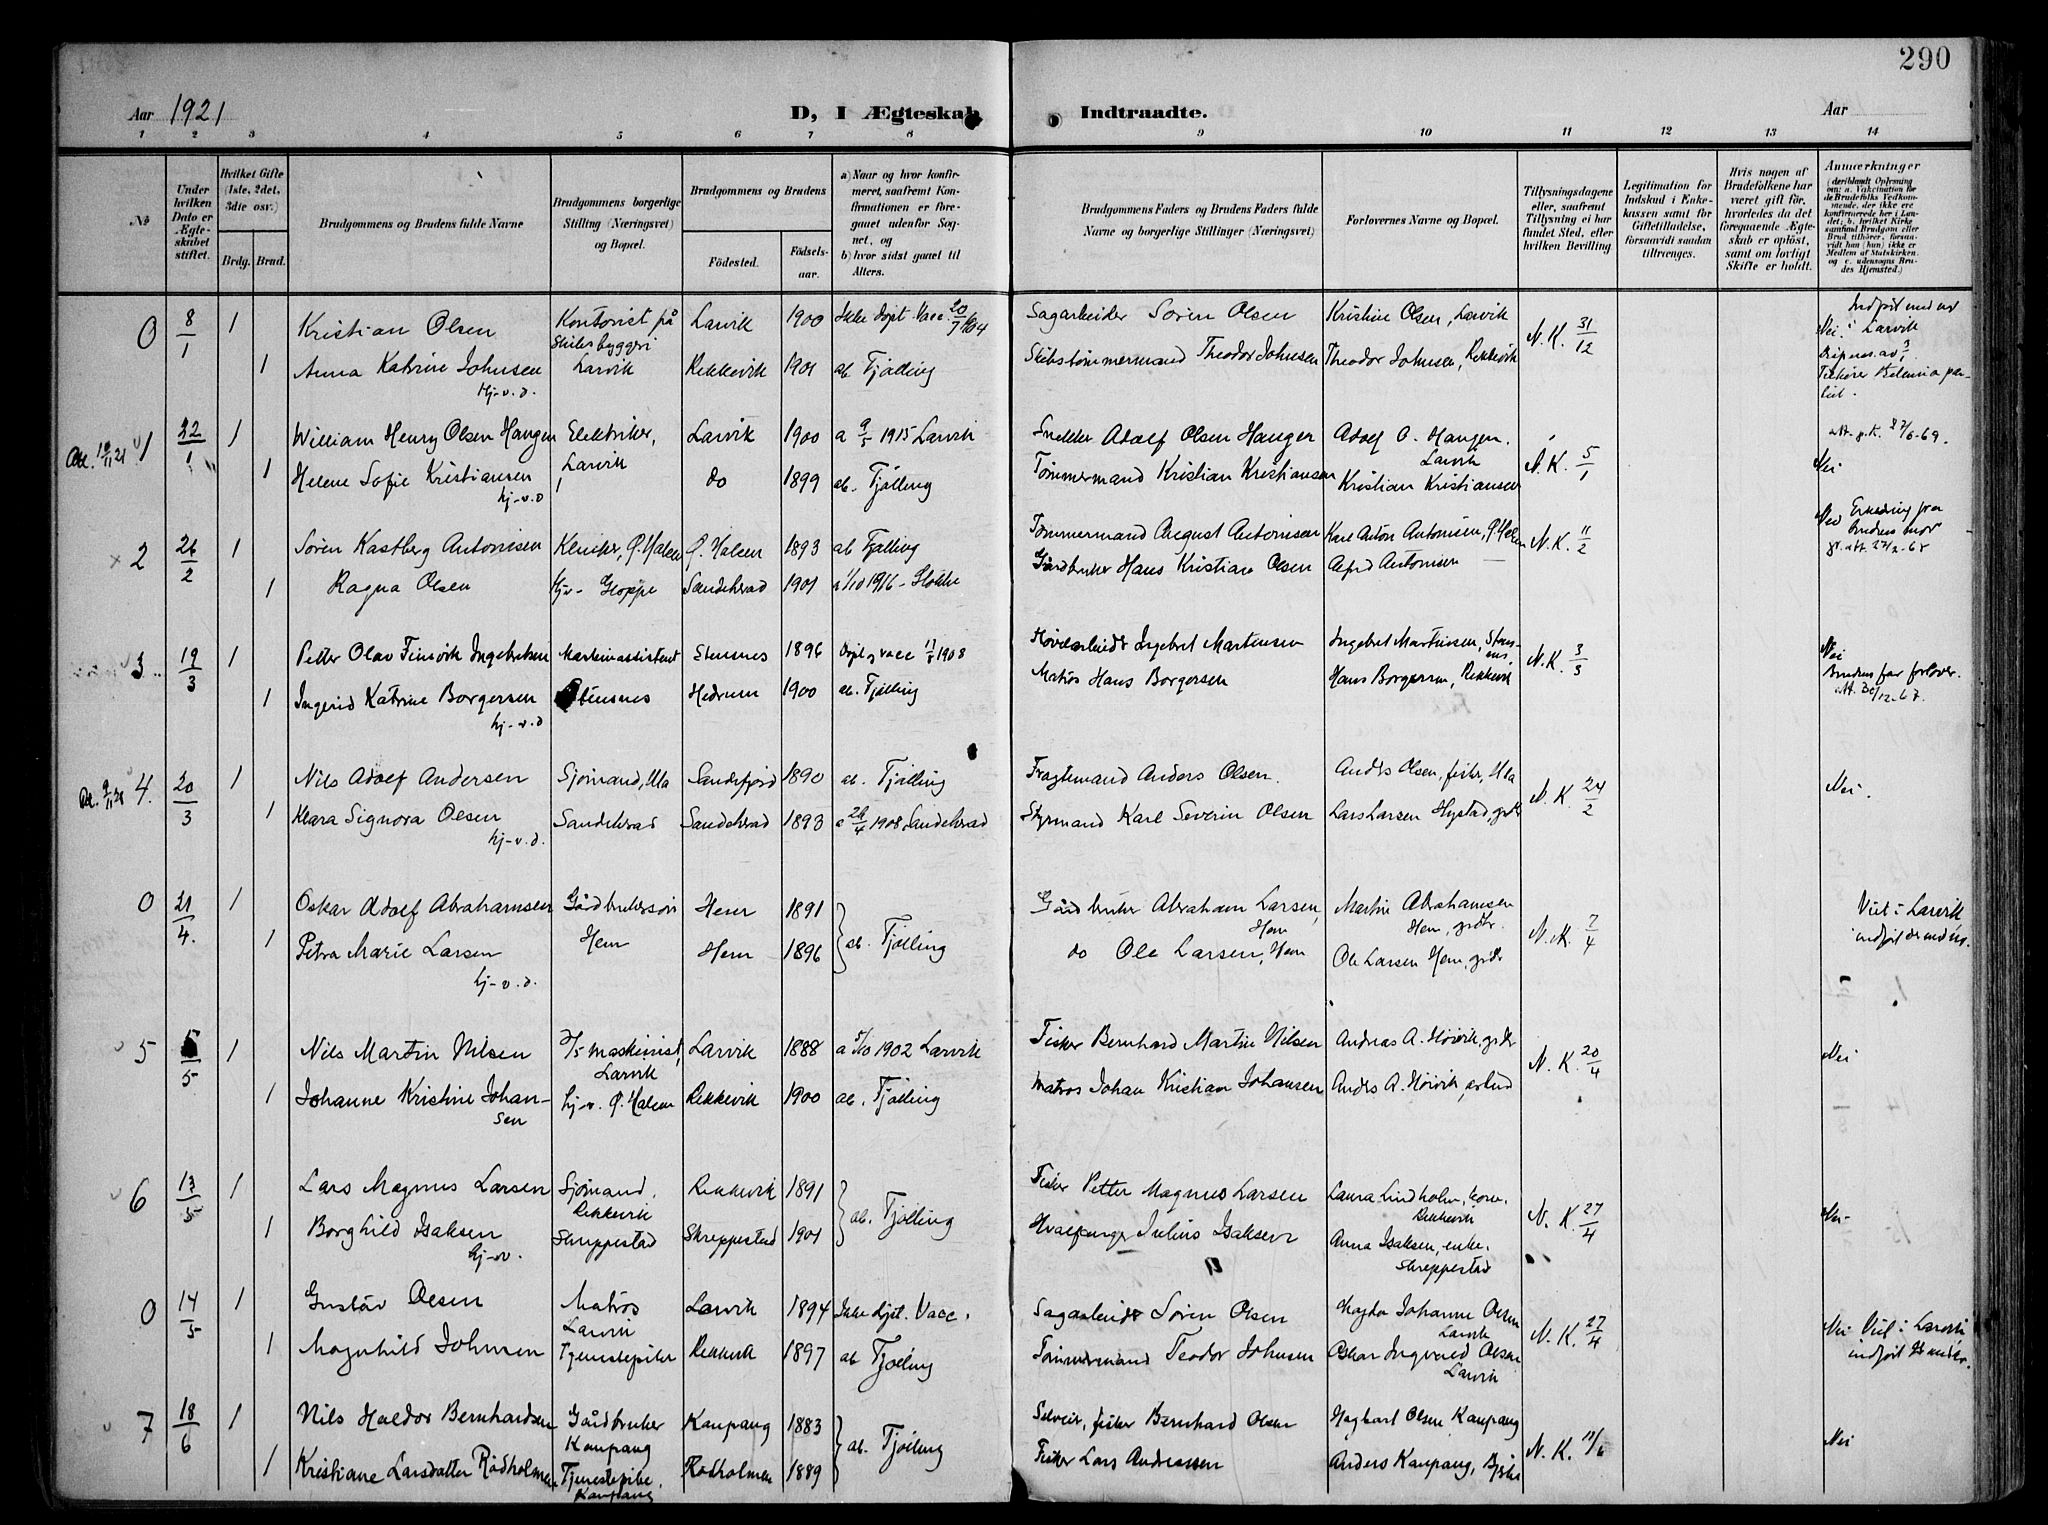 290
Aar 1921
D, I Ægteskab
Indtraadte.
Aar
1 2 3 4 5 6 7 8 9 10 11 12 13 14
No
Under hvilken Dato er Ægteskabet stiftet.
Hvilket Gifte (1ste, 2det, 3die osv.)
Brdg. Brud.
Brudgommens og Brudens fulde Navne
Brudgommens borgerlige Stilling (Næringsvei) og Bopæl.
Brudgommens og Brudens
Fødested.
Fødselsaar.
a) Naar og hvor konfirmeret, saafremt Konfirmationen er foregaaet udenfor Sognet, og
b) hvor sidst gaaet til Alters.
Brudgommens Faders og Brudens Faders fulde Navne og borgerlige Stillinger (Næringsvei)
Forlovernes Navne og Bopæl.
Tillysningsdagene eller, saafremt Tillysning ei har fundet Sted, efter hvilken Bevilling
Legitimation for Indskud i Enkekassen samt for Giftetilladelse, forsaavidt saadan tiltrænges.
Hvis nogen af Brudefolkene har været gift før, hvorledes da det foregaaende Ægteskab er opløst, samt om lovligt Skifte er holdt.
Anmerkninger
0 8/1 1 Kristian Olsen Kontorist på Skibsbyggeri Larvik 1900 Ikke døpt. Vacc. 20/7 Sagarbeider Søren Olsen Kristine Olsen, Larvik N. K. 31/12 Nei i Larvik
1 Anna Katrine Johnsen Larvik Rekkevik 1901 ab Tjølling Skibstømmermand Theodor Johnsen Theodor Johnsen, Rekkevik
hj-v.d.
1 22/1 1 William Henry Olsen Haugen Elektriker, Larvik 1900 a 9/5 1915 Larvik Snekker Adolf Olsen Haugen Adolf O. Haugen. Larvik N. K. 5/1 Nei
1 Helene Sofie Kristiansen Larvik do 1899 ab. Tjølling Tømmermand Kristian Kristiansen Kristian Kristiansen
hj-v.d
2 26/2 1 Søren Kastberg Antonisen Ø. Halsen Ø. Halsen 1893 ab Tjølling Tømmermand August Antonisen Karl Anton Antonisen, Ø. Halsen N. K. 11/2 Nei
1 Ragna Olsen hj-v- Sandeherad 1901 a 1/10 1916 - Stokke Gårdbruker Hans Kristian Olsen Antonisen
3 19/3 1 Petter Olav Ingebretsen Maskinassistent Stensnes 1896 Døpt og vacc 1908 Ingebret Martinsen Ingebret Martinsen, Stensnes. N. K. 3/3 Nei
1 Ingerid Katrine Borgersen Stensnes Hedrum 1900 ab. Tjølling Matros Hans Borgersen Hans Borgersen, Rekkevik Brudens far forlover.
hj-v.d
4. 20/3 1 Nils Adolf Andersen Sjømand, Ula Sandefjord 1890 ab. Tjølling Fragtemand Anders Olsen. Anders Olsen, fisker, Ula N. K. 24/2 Nei.
1 Klara Signora Olsen Sandeherad Sandeherad 1893 a 26/4 1908 Sandeherad Styrmand Karl Severin Olsen Lars Larsen Hystad, grdbr
hj-v.d.
0 21/4. 1 Oskar Adolf Abrahamsen Gårdbrukersøn Hem 1891 Gårdbruker Abraham Larsen, Hem Martin Abrahamsen Hem, grdbr. N. K. 7/4 Viet i Larvik
1 Petra Marie Larsen Hem Hem 1896 ab. Tjølling do Ole Larsen, Hem Ole Larsen Hem, grdbr
hj-v.d.
5 5/5 1 Nils Martin Nilsen maskinist, Larvik Larvik 1888 a 5/10 1902 Larvik Fisker Bernhard Martin Nilsen Andreas A. Høivik, grdbr N. K. 20/4 Nei
1 Johanne Kristine Johansen hj-v. Ø. Halsen Rekkevik 1900 ab. Tjølling Matros Johan Kristian Johansen Anders A. Høivik
6 13/5 1 Lars Magnus Larsen Sjømand, Rekkevik Rekkevik 1891 Fisker Petter Magnus Larsen Laura Lindholm, kone. Rekkevik N. K. 27/4 Nei-
1 Borghild Isaksen Skreppestad Skreppestad 1901 ab. Tjølling Hvalfanger Julius Isaksen Anna Isaksen, enke. Skreppestad
hj-v.
0 14/5 1 Gustav Olsen Matros Larvik Larvik 1894 Ikke døpt. Vacc. Sagarbeider Søren Olsen Johanne Olsen Larvik N. K. 27/4 Nei Viet i Larvik
1 Magnhild Johnsen Tjenestepike Rekkevik 1897 ab Tjølling Tømmermand Teodor Johnsen Oskar Ingvald Olsen Larvik
7 18/6 1 Nils Haldor Bernhardsen Gårdbruker Kaupang Kaupang 1883 Selveier, fisker Bernhard Olsen Hagbart Olsen Kaupang N. K. Nei
1 Kristiane Larsdatter Rødholmen Tjenestepike Kaupang Rødholmen 1889 ab. Tjølling Fisker Lars Andreassen Anders Kaupang